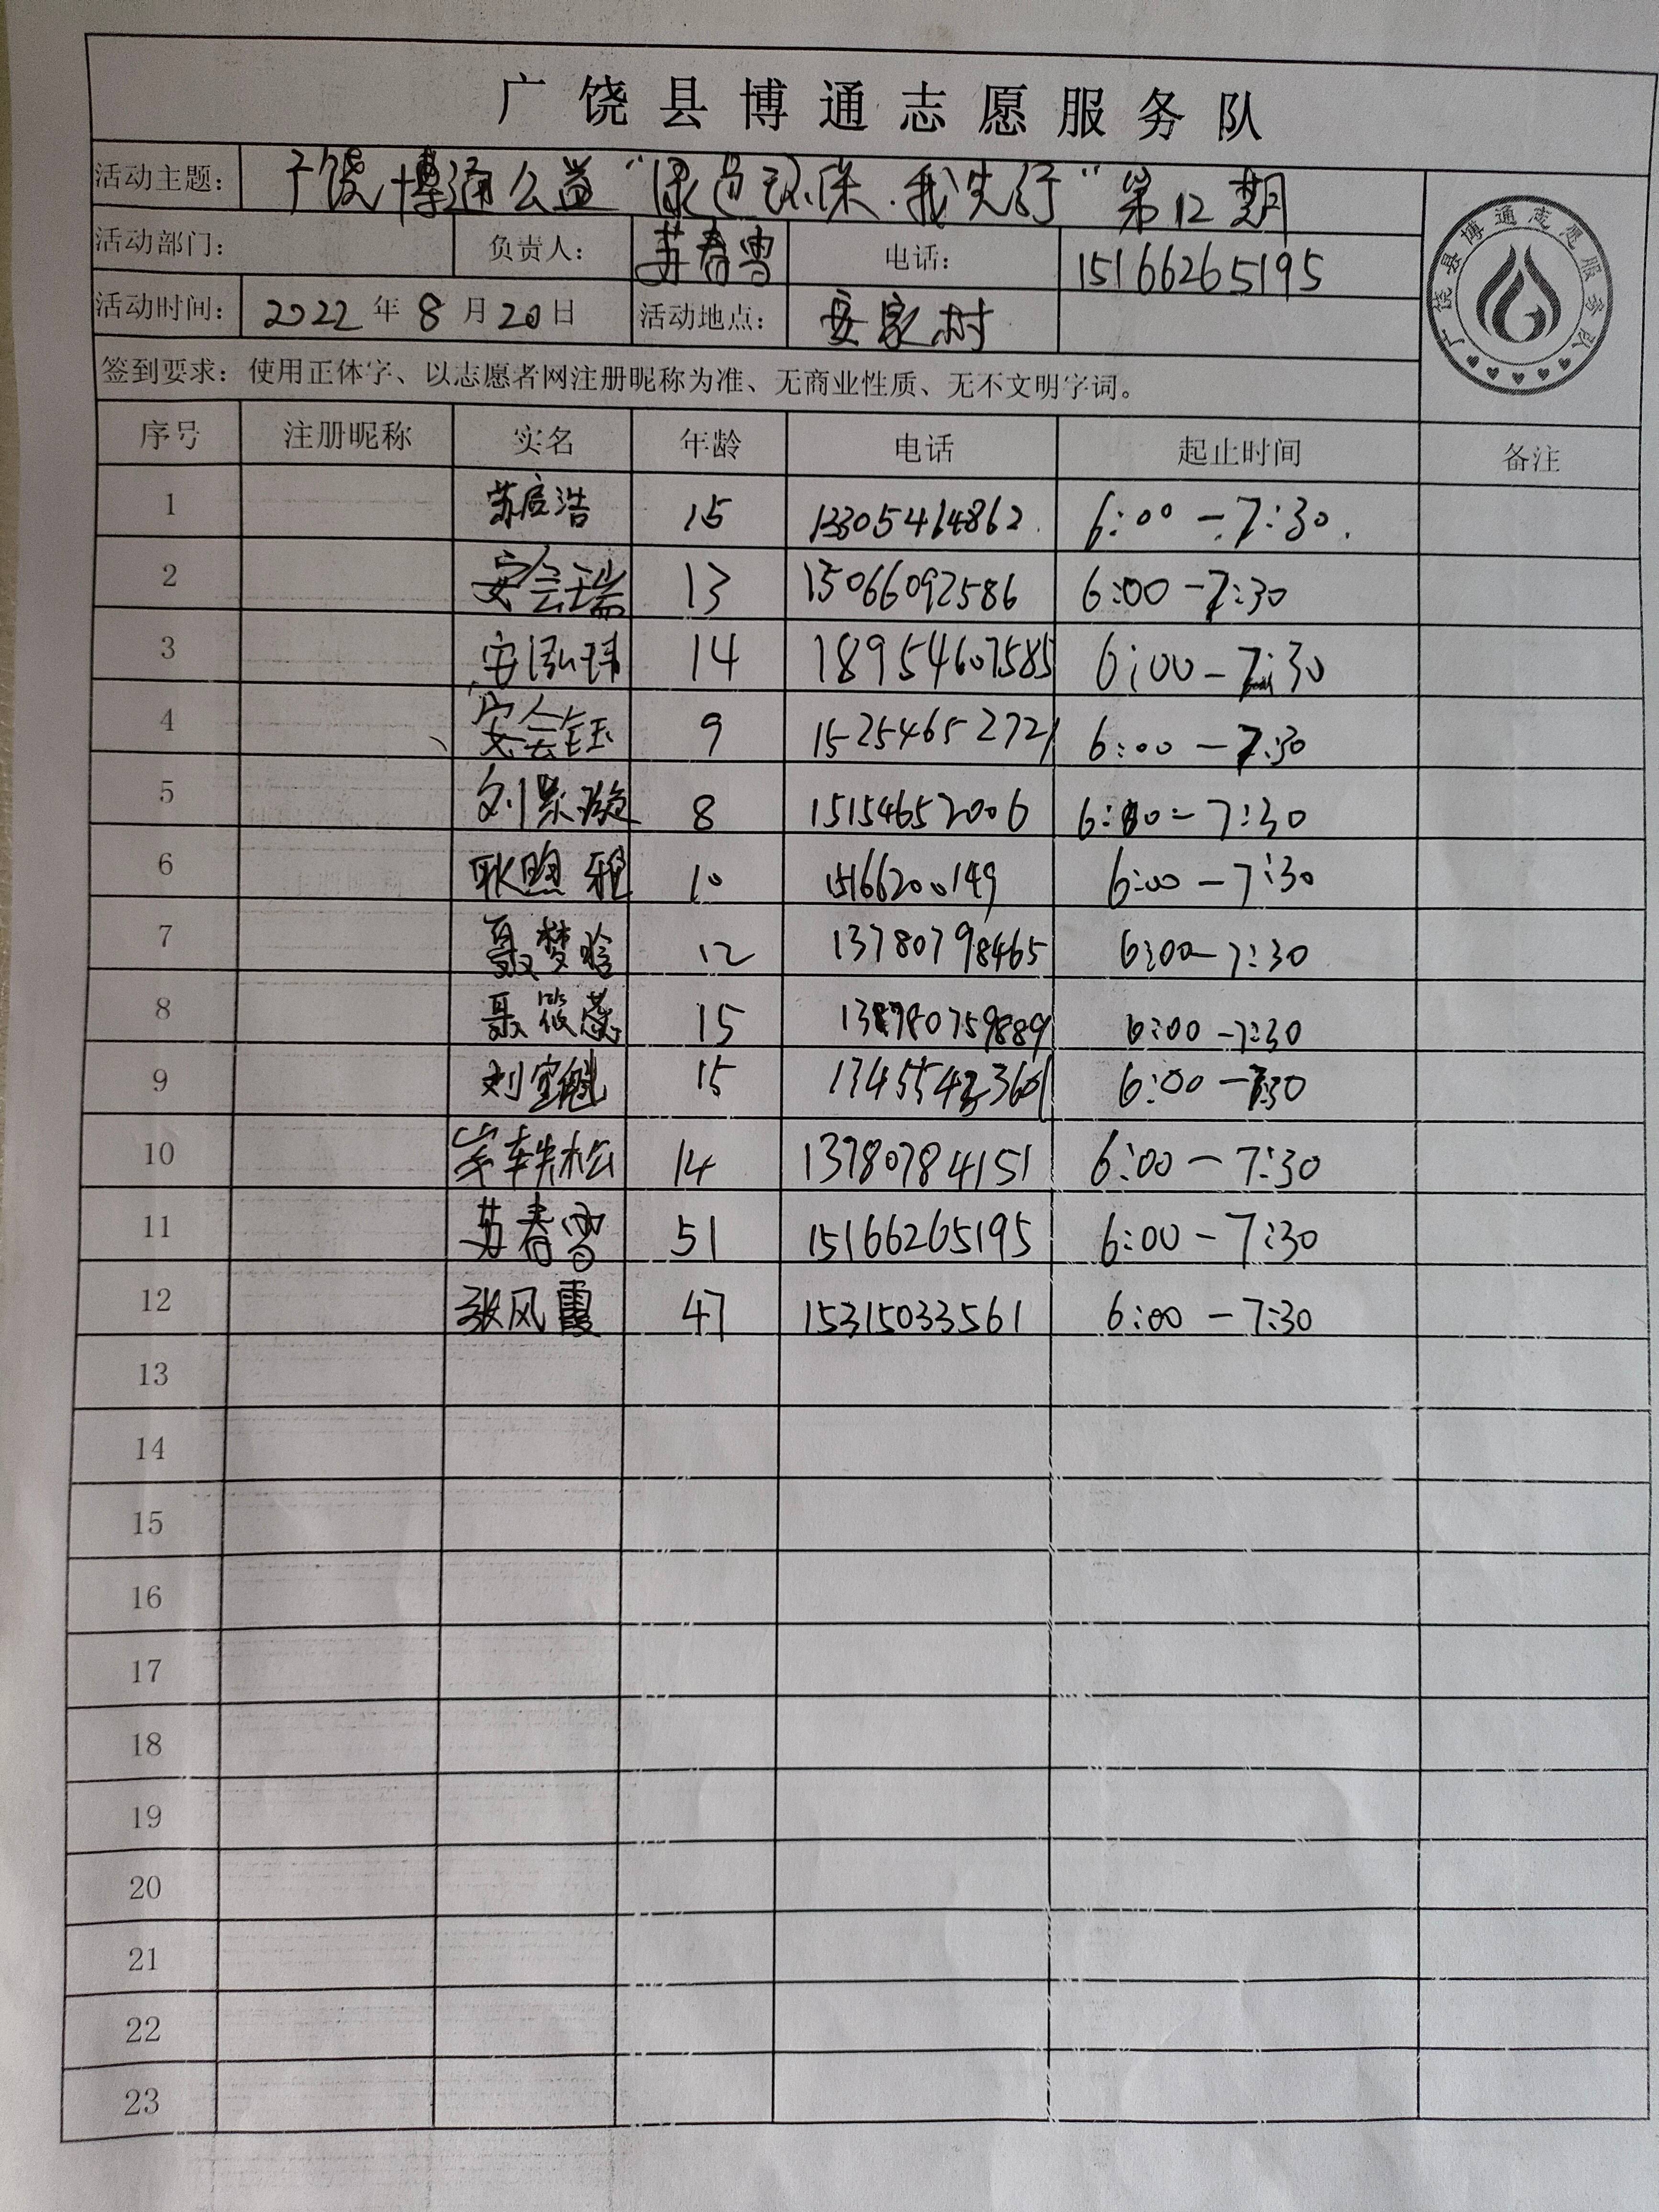 广饶县博通志愿服务队
活动主题： 广饶博通公益“绿色环保.我先行”第12期
活动部门： 负责人： 苏春雪 电话： 15166265195
活动时间： 2022年8月20日 活动地点： 安家村
广饶县博通志愿服务队
签到要求：使用正体字、以志愿者网注册昵称为准、无商业性质、无不文明字词。
序号 注册昵称 实名 年龄 电话 起止时间 备注
1 苏启浩 15 13305464862 6:00-7:30.
2 安会瑞 13 15066092586 6:00-7:30
3 安泓玮 14 18954607585 6:00-7:30
4 安会钰 9 15254652721 6:00-7:30
5 刘景璇 8 15154652006 6:00-7:30
6 耿煦雅 10 15166200149 6:00-7:30
7 聂梦晗 12 13780798465 6:00-7:30
8 聂筱蕊 15 6:00-7:30
9 刘宝魁 15 6:00-7:30
10 轶松 14 13780784151 6:00-7:30
11 苏春雪 51 15166265195 6:00-7:30
12 张风霞 47 15315033561 6:00-7:30
13
14
15
16
17
18
19
20
21
22
23